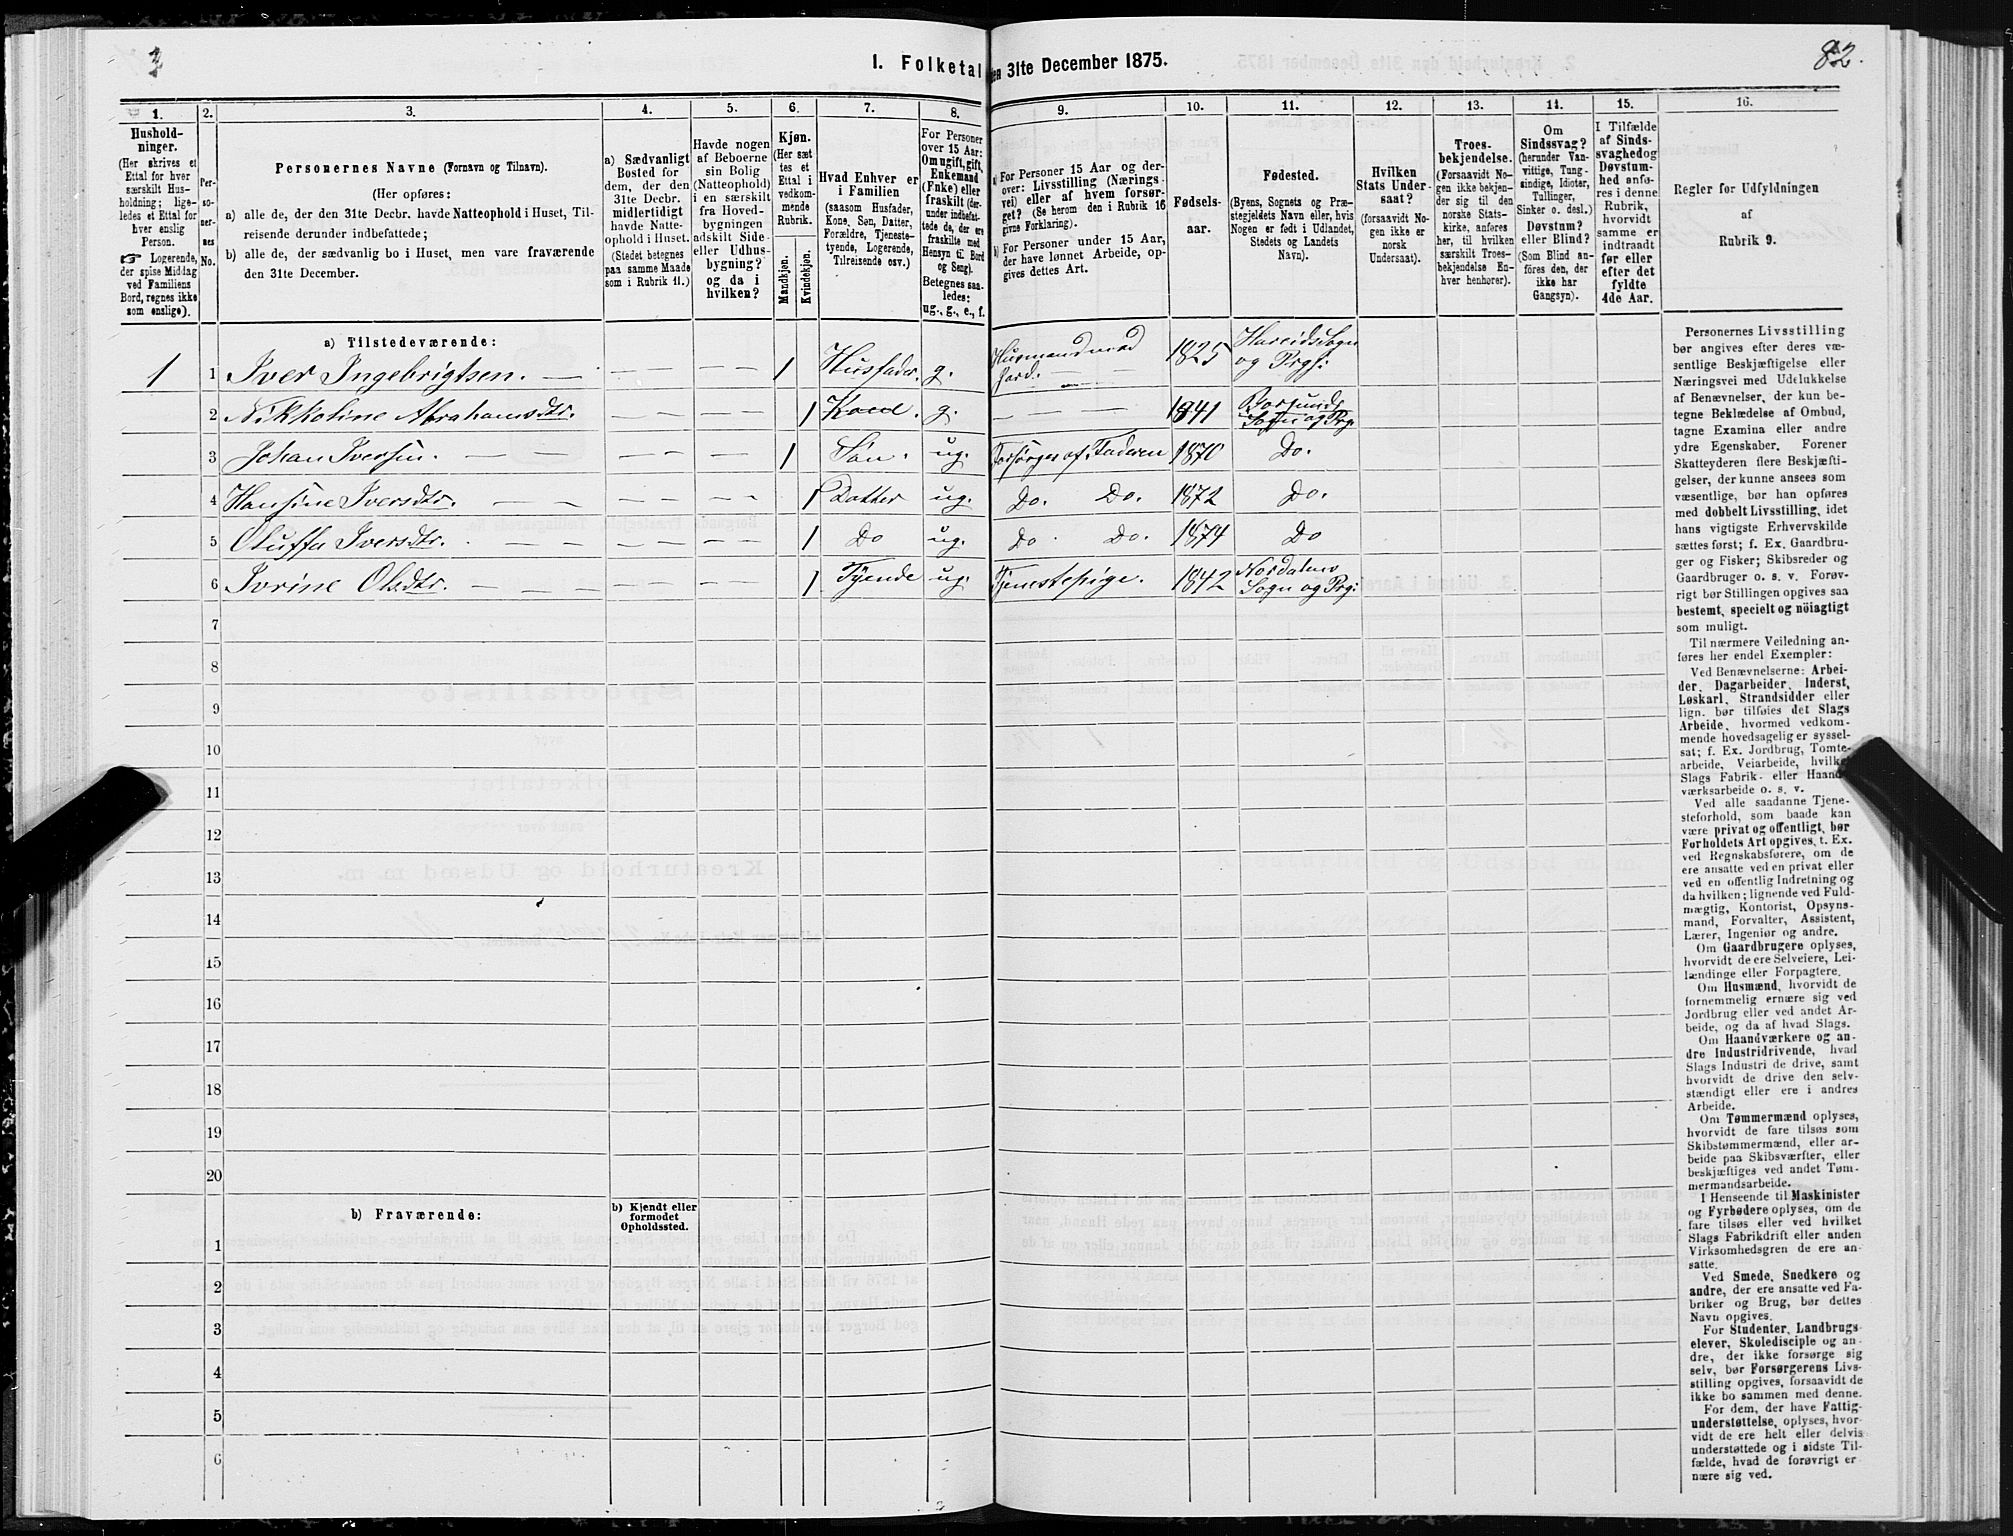 3
82.
1. Folketal den 31te December 1875.
1. 2. 3. 4. 5. 6. 7. 8. 9. 10. 11. 12. 13. 14. 15. 16.
Hushold-
ninger.
(Her skrives et
Ettal for hver
særskilt Hus-
holdning; lige-
ledes et Ettal for
hver enslig
Person.
☞ Logerende,
der spise Middag
ved Familiens
Bord, regnes ikke
som enslige).
Per-
so-
ner-
nes
No.
Personernes Navne (Fornavn og Tilnavn).
(Her opføres:
a) alle de, der den 31te Decbr. havde Natteophold i Huset, Til-
reisende derunder indbefattede;
b) alle de, der sædvanlig bo i Huset, men vare fraværende
den 31te December.
a) Sædvanligt
Bosted for
dem, der den
31te Decbr.
midlertidigt
havde Natte-
ophold i Huset.
(Stedet betegnes
paa samme Maade
som i Rubrik 11.)
Havde nogen
af Beboerne
sin Bolig
(Natteophold)
i en særskilt
fra Hoved-
bygningen
adskilt Side-
eller Udhus-
bygning?
og da i
hvilken?
Kjøn.
(Her sæt-
tes et
Ettal i
vedkom-
mende
Rubrik.
Mandkjøn.
Kvindekjøn.
Hvad Enhver er
i Familien
(saasom Husfader,
Kone, Søn, Datter,
Forældre, Tjeneste-
tyende, Logerende,
Tilreisende osv.)
For Personer
over 15 Aar:
Om ugift, gift,
Enkemand
(Enke) eller
fraskilt (der-
under indbefat-
tede de, der ere
fraskilte med
Hensyn til Bord
og Seng).
Betegnes saa-
ledes:
ug., g., e., f.
a) For Personer 15 Aar og der-
over: Livsstilling (Nærings-
vei) eller af hvem forsør-
get? (Se herom den i Rubrik 16
givne Forklaring).
b) For Personer under 15 Aar,
der have lønnet Arbeide, op-
gives dettes Art.
Fødsels-
aar.
Fødested.
(Byens, Sognets og Præ-
stegjeldets Navn eller, hvis
Nogen er født i Udlandet,
Stedets og Landets
Navn).
Hvilken
Stats Under-
saat?
(forsaavidt No-
gen ikke er
norsk
Undersaat).
Troes-
bekjendelse.
(Forsaavidt No-
gen ikke bekjen-
der sig til den
norske Stats-
kirke, anføres
her, til hvilken
særskilt Troes-
bekjendelse En-
hver henhører).
Om
Sindssvag?
(herunder Van-
vittige, Tung-
sindige, Idioter,
Tullinger,
Sinker o. desl.)
Døvstum?
eller Blind?
(Som Blind an-
føres den, der
ikke har
Gangsyn).
I Tilfælde
af Sinds-
svaghed og
Døvstum-
hed anfø-
res i denne
Rubrik,
hvorvidt
samme er
indtraadt
før eller
efter det
fyldte
4de Aar.
Regler for Udfyldningen
af
Rubrik 9.
a) Tilstedeværende:
1 1 Iver Ingebrigtsen. 1 Husfader. g. Husmand med Jord. 1825 Hareids Sogn og Prgj:
2 Nikkoline Abrahamsdtr. 1 Kone. g. 1841 Borgunds Sogn og Prg:
3 Johan Iversen. 1 Søn. ug. Forsørges af Faderen 1870 Do.
4 Hansine Iversdtr. 1 Datter ug. Do. Do. 1872 Do.
5 Oluffa Iversdtr. 1 Do ug. Do. Do. 1874 Do
6 Ivrine Olsdtr. 1 Tyende ug. Tjenestepige. 1842 Nordalens Sogn og Prg:
7
8
9
10
11
12
13
14
15
16
17
18
19
20
b) Fraværende:
b) Kjendt eller
formodet
Opholdssted.
1
2
3
4
5
6
Personernes Livsstilling
bør angives efter deres væ-
sentlige Beskjæftigelse eller
Næringsvei med Udelukkelse
af Benævnelser, der kun be-
tegne Beklædelse af Ombud,
tagne Examina eller andre
ydre Egenskaber. Forener
Skatteyderen flere Beskjæfti-
gelser, der kunne ansees som
væsentlige, bør han opføres
med dobbelt Livsstilling, idet
hans vigtigste Erhvervskilde
sættes først; f. Ex. Gaardbru-
ger og Fisker; Skibsreder og
Gaardbruger o. s. v. Forøv-
rigt bør Stillingen opgives saa
bestemt, specielt og nöiagtigt
som muligt.
Til nærmere Veiledning an-
føres her endel Exempler:
Ved Benævnelserne: Arbei-
der, Dagarbeider, Inderst,
Løskarl, Strandsidder eller
lign. bør tilføies det Slags
Arbeide, hvormed vedkom-
mende hovedsagelig er syssel-
sat; f. Ex. Jordbrug, Tomte-
arbeide, Veiarbeide, hvilket
Slags Fabrik- eller Haand-
værksarbeide o. s. v.
Ved alle saadanne Tjene-
steforhold, som baade kan
være privat og offentligt, bør
Forholdets Art opgives, t. Ex.
ved Regnskabsførere, om de
ere ansatte ved en privat eller
ved en offentlig Indretning og
da hvilken; lignende ved Fuld-
mægtig, Kontorist, Opsyns-
mand, Forvalter, Assistent,
Lærer, Ingeniør og andre.
Om Gaardbrugere oplyses,
hvorvidt de ere Selveiere, Lei-
lændinge eller Forpagtere.
Om Husmænd, hvorvidt de
fornemmelig ernære sig ved
Jordbrug eller ved andet Ar-
beide, og da af hvad Slags.
Om Haandværkere og an-
dre Industridrivende, hvad
Slags Industri de drive, samt
hvorvidt de drive den selv-
stændigt eller ere i andres
Arbeide.
Om Tømmermænd oplyses,
hvorvidt de fare tilsøs som
Skibstømmermænd, eller ar-
beide paa Skibsværfter, eller
beskjæftiges ved andet Tøm-
mermandsarbeide.
I Henseende til Maskinister
og Fyrbødere oplyses, om de
fare tilsøs eller ved hvilket
Slags Fabrikdrift eller anden
Virksomhedsgren de ere an-
satte.
Ved Smede, Snedkere og
andre, der ere ansatte ved Fa-
briker og Brug, bør dettes
Navn opgives.
For Studenter, Landbrugs-
elever, Skoledisciple og an-
dre, der ikke forsørge sig
selv, bør Forsørgerens Livs-
stilling opgives, forsaavidt de
ikke bo sammen med denne.
For dem, der have Fattig-
understøttelse, oplyses, hvor-
vidt de ere helt eller delvis
understøttede og i sidste Til-
fælde, hvad de forøvrigt er-
nære sig ved.